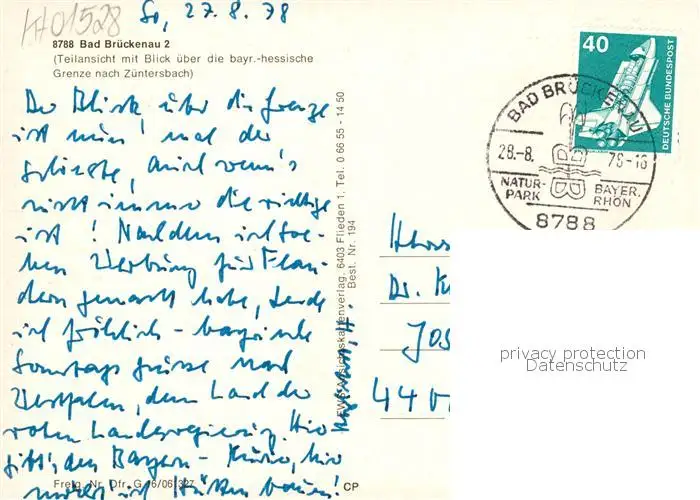 HO1528
So, 27.8.78
8788 Bad Brückenau 2
(Teilansicht mit Blick über die bayr.-hessische
Grenze nach Züntersbach)
Der Blick über die Grenze
ist nun 'mal der
schönste, auch wenn's
nicht immer die richtige
ist! Nachdem ich soe-
ben Werbung für Flan-
dern gemacht habe, sende
ich fröhlich-bayrische
Sonntagsgrüsse nach
Westfalen, dem Land der
roten Landesregierung. Hier
gibt's den Bayern-Kurier, hier
Freig. Nr. Dfr. G 16/06327
CP
Ansichtskartenverlag, 6403 Flieden 1, Tel. 0 66 55 - 14 50
Best. Nr. 194
40
DEUTSCHE BUNDESPOST
BAD BRÜCKENAU
28.-8. 78-18
NATUR-PARK BAYER. RHÖN
8788
Dr.
Jos
440
privacy protection
Datenschutz